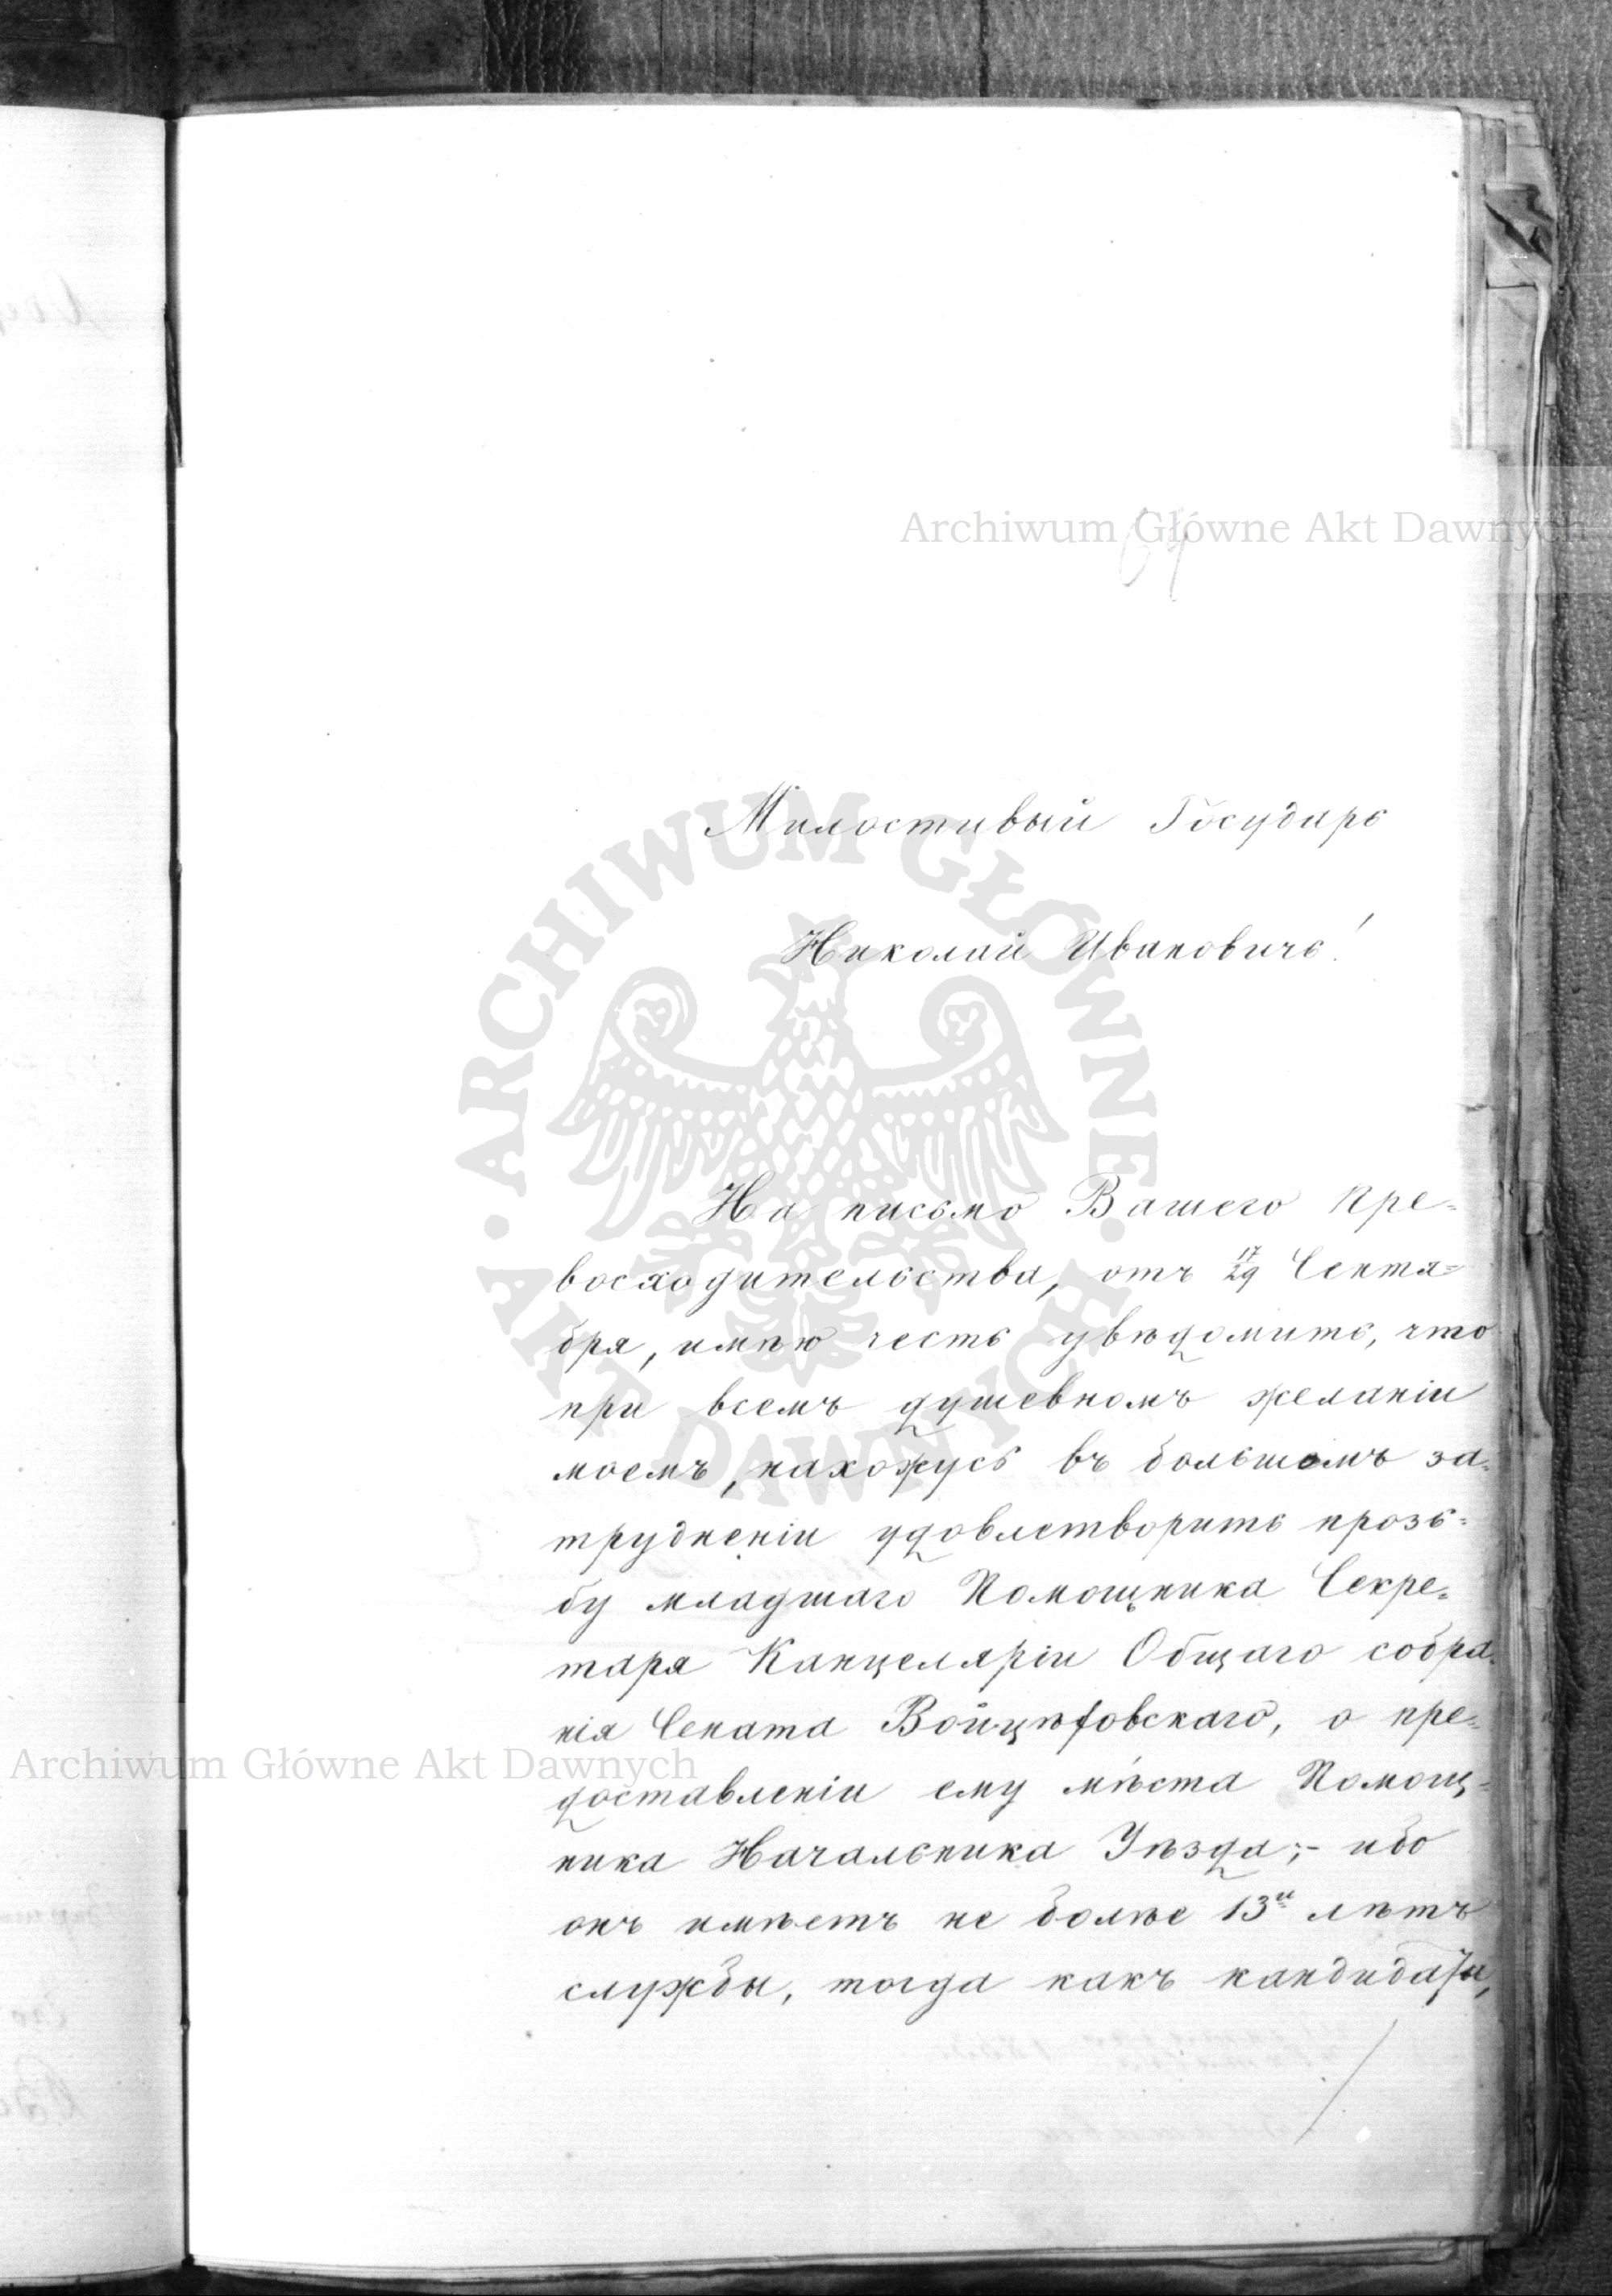 Archiwum Główne Akt Dawnych
64
Милостивый Государь
Николай Ивановичь!
На письмо Вашего Пре-
восходительства, отъ 17/29 Сентя=
бря, имѣю честь увѣдомить, что
при всемъ душевномъ желаніи
моемъ, нахожусь въ большомъ за-
трудненіи удовлетворить прозь=
бу младшаго Помощника Секре-
таря Канцеляріи Общаго собра-
нія Сената Войцѣховскаго, о пре-
доставленіи ему мѣста Помощ-
ника Начальника Уѣзда;- ибо
онъ имѣетъ не болѣе 13и лѣтъ
службы, тогда какъ кандидаты,
ARCHIWUM GŁÓWNE • AKT DAWNYCH •
Archiwum Główne Akt Dawnych